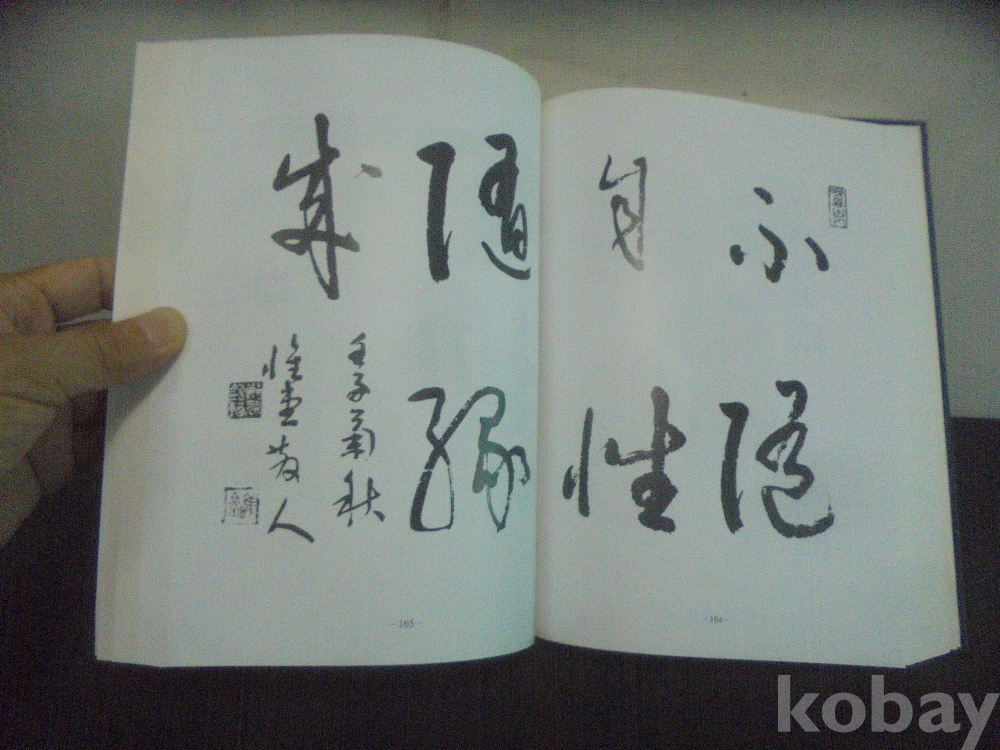 不隨
自性
-164-
隨緣
成
壬子菊秋
惟堂散人
-165-
kobay